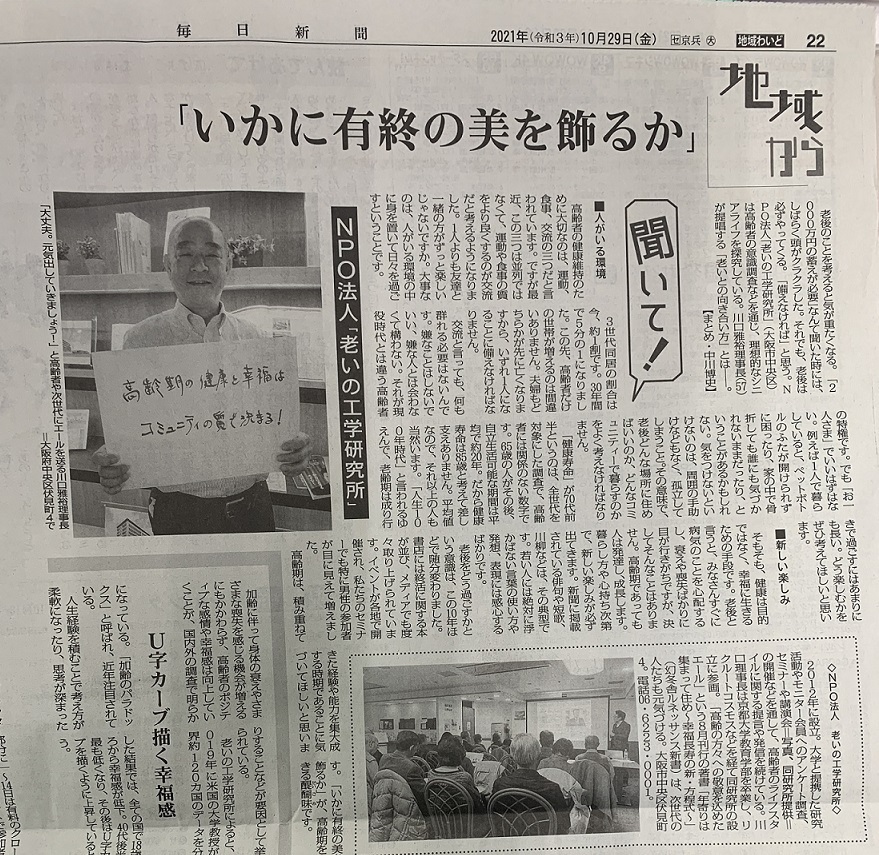 毎日新聞
2021年(令和3年)10月29日(金)
地域わいど
22
地域から
「いかに有終の美を飾るか」
聞いて!
老後のことを考えると気が重たくなる。「2
000万円の蓄えが必要」なんて聞いた時には、
しばらく頭がクラクラした。それでも、老後は
必ずやってくる。「備えなければ」と思う。N
PO法人「老いの工学研究所」(大阪市中央区)
は高齢者の意識調査などを通じ、理想的なシニ
アライフを探究している。川口雅裕理事長(57)
が提唱する「老いとの向き合い方」とは――。
【まとめ・中川博史】
■人がいる環境
高齢者の健康維持のた
めに大切なのは、運動、
食事、交流の三つだと言
われています。ですが最
近、この三つは並列では
なくて、運動や食事の質
をより良くするのが交流
だと考えるようになりま
した。1人よりも友達と
一緒の方がずっと楽しい
じゃないですか。大事な
のは、人がいる環境の中
に身を置いて日々を過ご
すということです。
3世代同居の割合は
今、約1割です。30年間
で5分の1になりまし
た。この先、高齢者だけ
の世帯が増えるのは間違
いありません。夫婦もど
ちらかが先に亡くなりま
すから、いずれ1人にな
ることに備えなければな
りません。
交流と言っても、何も
群れる必要はないんで
す。嫌なことはしないで
いい、嫌な人とは会わな
くて構わない。それが現
役時代とは違う高齢者
の特権です。でも「お一
人さま」でいいはずはな
い。例えば1人で暮ら
していると、ペットボト
ルのふたが開けられず
に困ったり、家の中で骨
折しても誰にも気づか
れないままだったり、と
いうことがあるかもしれ
ない。気をつけないとい
けないのは、周囲の手助
けなどもなく、孤立して
しまうこと。その意味で、
老後どんな場所に住め
ばいいのか、どんなコミ
ュニティーで暮らすのか
をよく考えなければなり
ません。
「健康寿命」が70代前
半というのは、全世代を
対象にした調査で、高齢
者には関係のない数字で
す。65歳の人がその後、
自立生活可能な期間は平
均で約20年。だから健康
寿命は85歳と考えて差し
支えありません。平均値
なので、それ以上の人も
当然います。「人生10
0年時代」と言われるゆ
えんで、老齢期は成り行
きで過ごすにはあまりに
も長い。どう楽しむかを
ぜひ考えてほしいと思い
ます。
■新しい楽しみ
そもそも、健康は目的
ではなく、幸福に生きる
ための手段です。老後と
言うと、みなさんすぐに
病気のことを心配する
し、衰えや喪失ばかりに
目が行きがちですが、決
してそんなことはありま
せん。高齢期であっても
人は発達し、成長します。
暮らし方や心持ち次第
で、新しい楽しみが必ず
出てきます。新聞に掲載
されている俳句や短歌、
川柳などは、その典型で
す。若い人には絶対に浮
かばない言葉の使い方や
発想、表現には感心する
ばかりです。
老後をどう過ごすかと
いう意識は、この10年ほ
どで随分変わりました。
書店には終活に関する本
が並び、メディアでも度
々取り上げられていま
す。イベントが各地で開
催され、私たちのセミナ
ーでも特に男性の参加者
が目に見えて増えまし
た。
高齢期は、積み重ねて
きた経験や能力を集大成
する時期であることに気
づいてほしいと思いま
す。「いかに有終の美を
飾るか」が、高齢期を生
きる醍醐味です。
NPO法人「老いの工学研究所」
高齢期の健康と幸福は
コミュニティの質で決まる!
「大丈夫。元気出していきましょう!」と高齢者や次世代にエールを送る川口雅裕理事長
=大阪府中央区伏見町4で
◇NPO法人 老いの工学研究所◇
2012年に設立。大学と提携した研究
活動やモニター会員へのアンケート調査、
セミナーや講演会=写真、同研究所提供=
の開催などを通して、高齢者のライフスタ
イルに関する提言や発信を続けている。川
口理事長は京都大学教育学部を卒業し、リ
クルートコスモスなどを経て同研究所の設
立に参画。「高齢の方々への敬意を込めた
エール」という8月刊行の著書「年寄りは
集まって住め~幸福長寿の新・方程式~」
(幻冬舎ルネッサンス新書)は、次世代の
人たちも元気づける。大阪市中央区伏見町
4。電話06・6223・0001。
U字カーブ描く幸福感
加齢に伴って身体の衰えやさま
ざまな喪失を感じる機会が増える
にもかかわらず、高齢者のポジテ
ィブな感情や幸福感は向上してい
くことが、国内外の調査で明らか
になっている。「加齢のパラドッ
クス」と呼ばれ、近年注目されて
いる。
人生経験を積むことで考え方が
柔軟になったり、思考が深まった
りすることなどが要因として挙
老いの工学研究所によると、
0年に米国の大学教授が
界約120カ国のデータを分
した結果では、全ての国で18歳
ろから幸福感が低下。40代後半
最も低くなり、その後はU字カ
ブを描くように上昇していると
う。